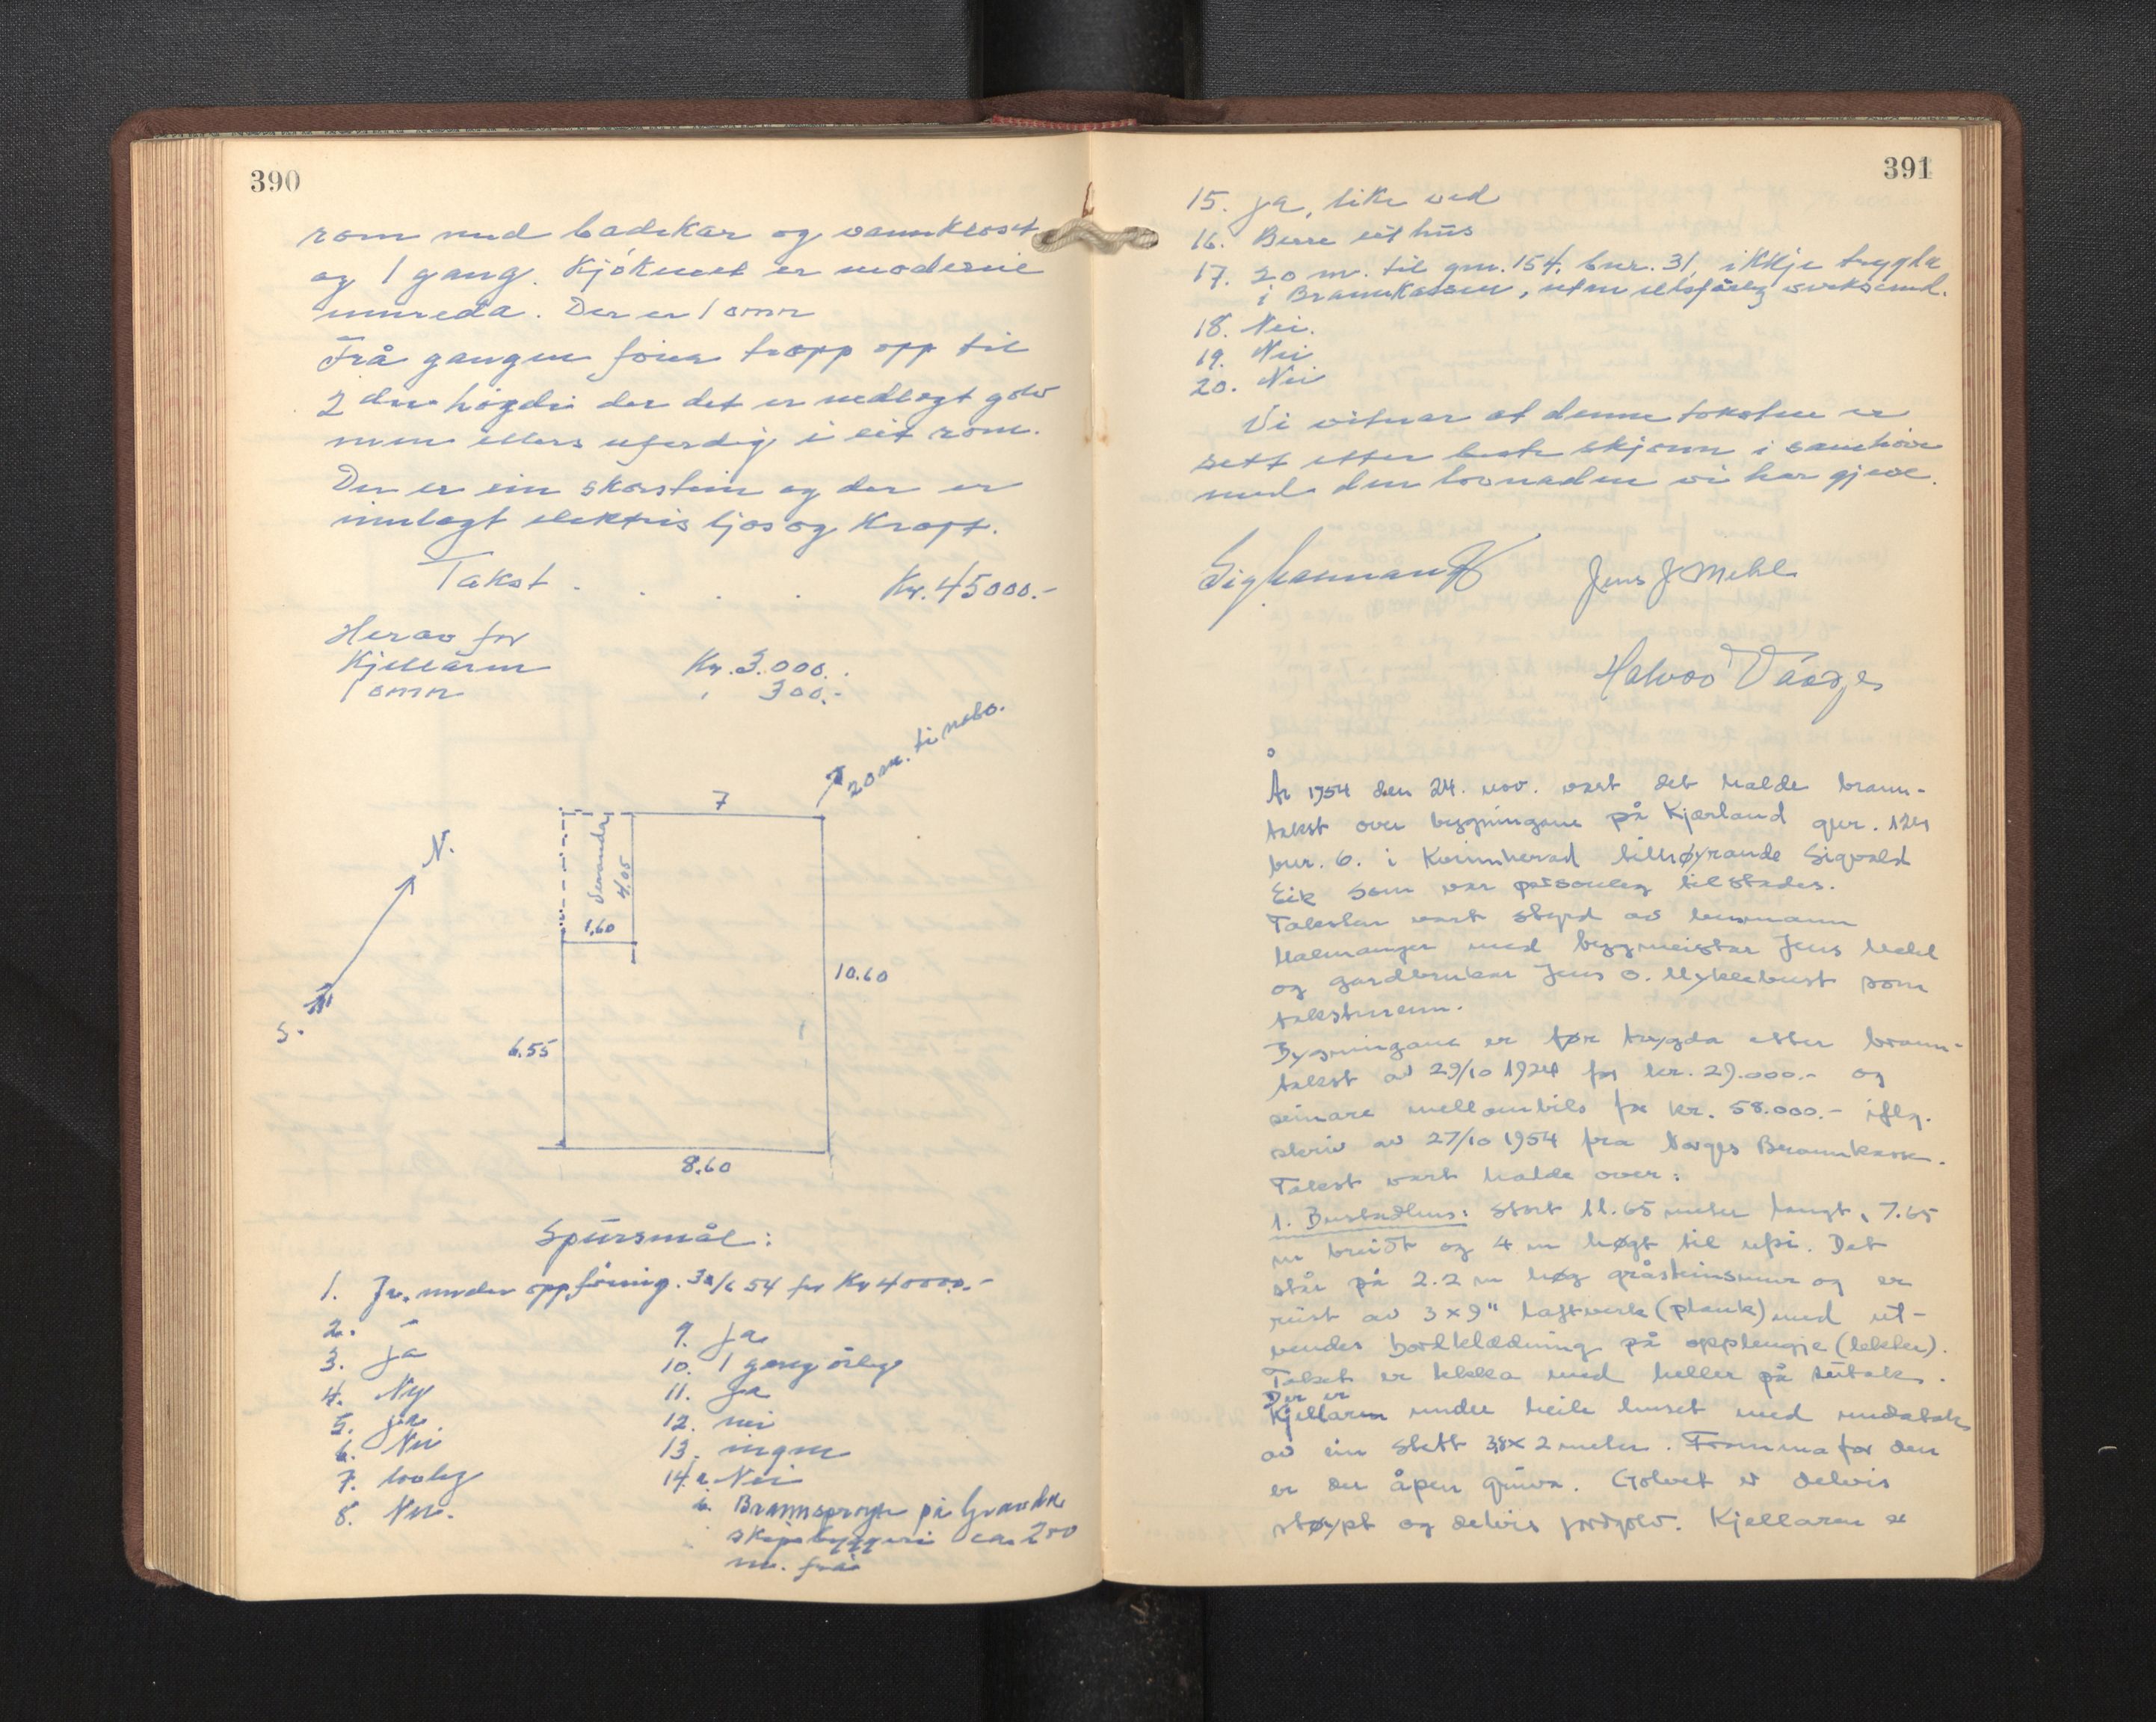 390
rom med badekar og vannkloset
og 1 gang. Kjøkenet er moderne
innreda. Der er 1 omn
Frå gangen fører trapp opp til
2 dre høgdi der det er nedlagt golv
men ellers uferdig i eit rom.
Der er ein skorstein og der er
innlagt elektris ljos og Kraft.
Takst . . . . Kr. 45000.-
Herav for
Kjellaren Kr. 3.000.
1 omn " 300.-
20 m. til nabo.
7
Veranda
4,05
1,60
N.
S.
10.60
6.55
8.60
Spursmål:
1. Ja. under oppføring. 30/6 54 for Kr 40000.-
2. -
3. Ja
4. Ny
5. ja
6. Nei
7. lovleg
8. Nei.
9. Ja
10. 1 gang årleg
11. Ja
12. nei
13. ingen
14. a. Nei
b. Brannsprøyte på
skipsbyggeri ca. 200
m. frå
391
15. Ja, like ved
16. Berre eit hus
17. 20 m. til gnr. 154, bnr. 31, ikkje trygda
i Brannkassen, utan eldsfårleg verksemd.
18. Nei.
19. Nei
20. Nei
Vi vitnar at denne taksten er
sett etter beste skjønn i samhøve
med den lovnaden vi har gjeve.
Jens J Mehl
Halvor
År 1954 den 24. nov. vart det halde brann-
takst over bygningane på Kjærland gnr. 124
bnr. 6. i Kvinnherad tilhøyrande Sigvald
Eik som var personleg tilstades.
Taksten vart styrd av lensmann
Malmanger med byggmeistar Jens Mehl
og gardbrukar Jens O. Myklebust som
takstmenn.
Bygningane er før trygda etter brann-
takst av 29/10 1924 for kr. 29.000.- og
seinare mellombils for kr. 58.000.- iflg.
skriv av 27/10 1954 fra Norges Brannkasse.
Takst vart halde over:
1. Bustadhus: stort 11.65 meter langt, 7.65
m breidt og 4 m høgt til upsi. Det
står på 2.2 m høg gråsteinsmur og er
reist av 3x9" laftverk (plank) med ut-
vendes bordklædning på opplengje (lekter).
Taket er tekka med heller på sutak.
Der er
Kjellaren under heile huset med undatak
av ein slett 3,8x 2 meter. Framma for den
er der åpen gruva. Golvet er delvis
støypt og delvis jordgolv. Kjellaren er